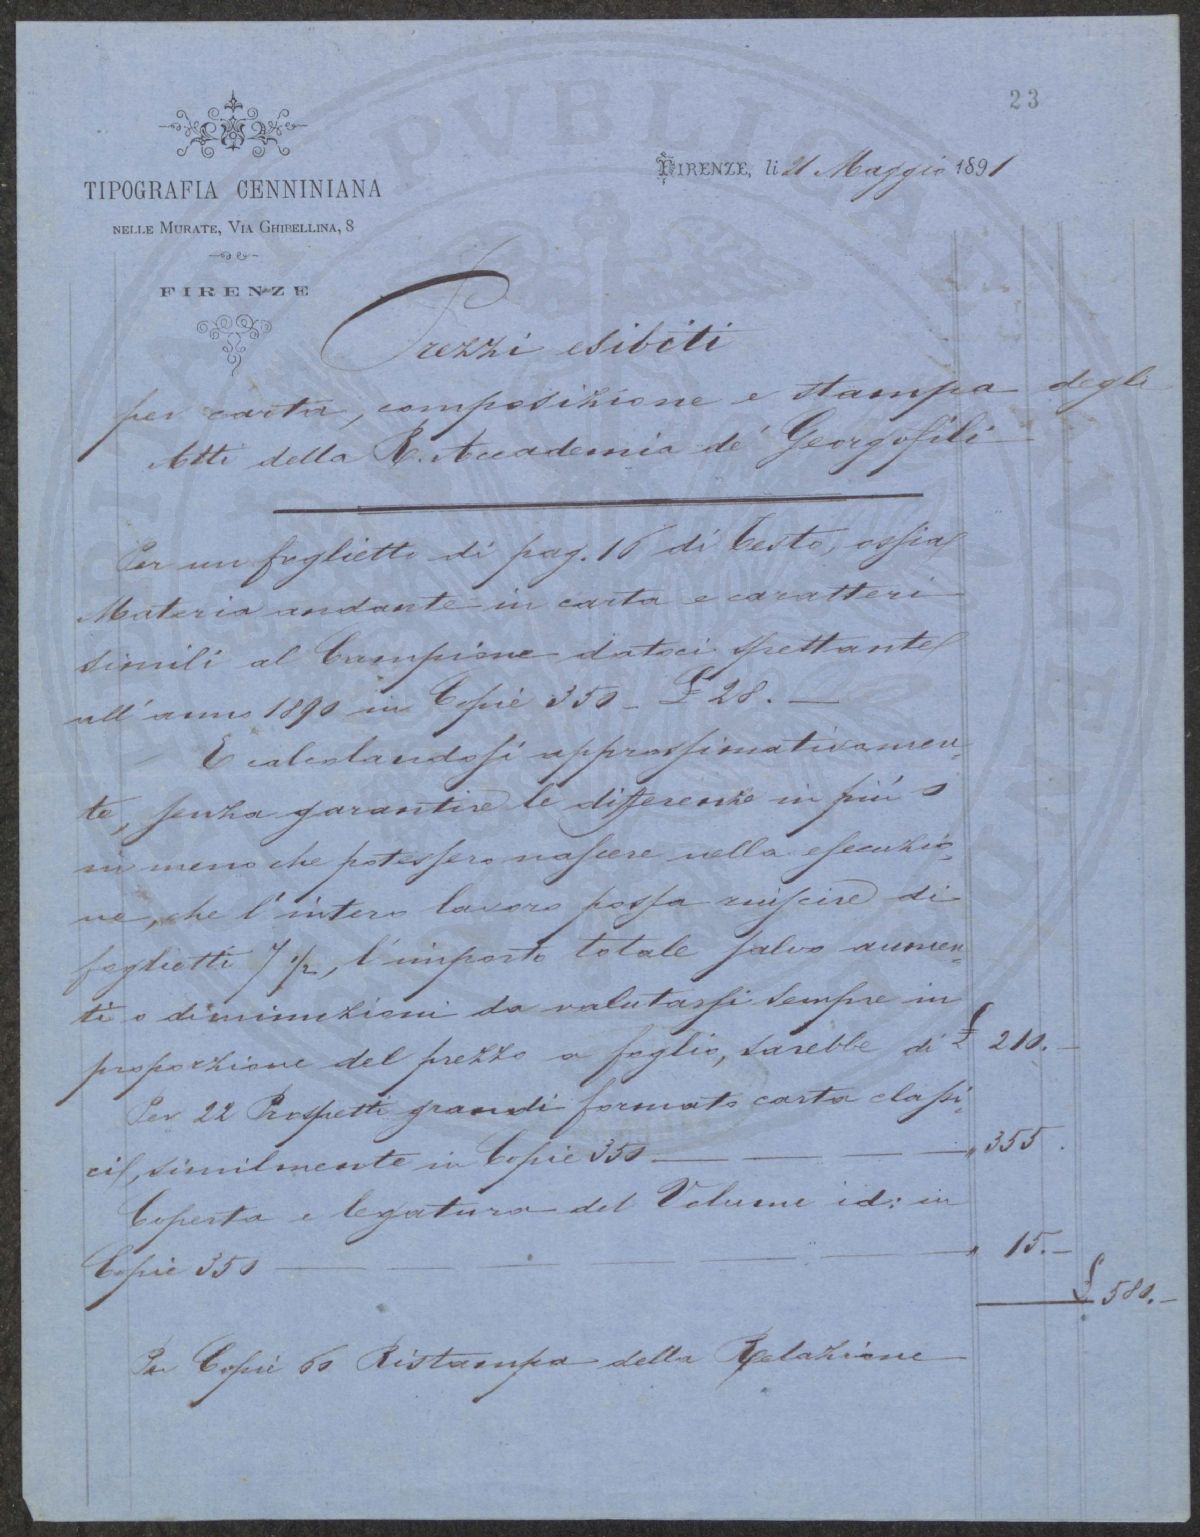 23
TIPOGRAFIA CENNINIANA
NELLE MURATE, VIA GHIBELLINA, 8
FIRENZE
FIRENZE, li 21 Maggio 1891
Prezzi esibiti
per carta, composizione e stampa degli
Atti della R. Accademia de' Georgofili
Per un foglietto di pag. 16 di Testo, ossia
Materia andante in carta e caratteri
simili al Campione datoci spettante
all'anno 1890 in Copie 350 - £ 28. —
E calcolandosi approssimativamen-
te, senza garantire le differenze in più o
in meno che potessero nascere nella esecuzio-
ne, che l'intero lavoro possa riuscire di
foglietti 7 1/2, l'importo totale salvo aumen-
ti o diminuzioni da valutarsi sempre in
proporzione del prezzo a foglio, sarebbe di £ 210. -
Per 22 Prospetti grandi formato carta classi-
ci, similmente in Copie 350 — — — — " 355.
Coperta e legatura del Volume id: in
Copie 350 — — — — — " 15. -
£ 580. -
Per Copie 60 Ristampa della Relazione